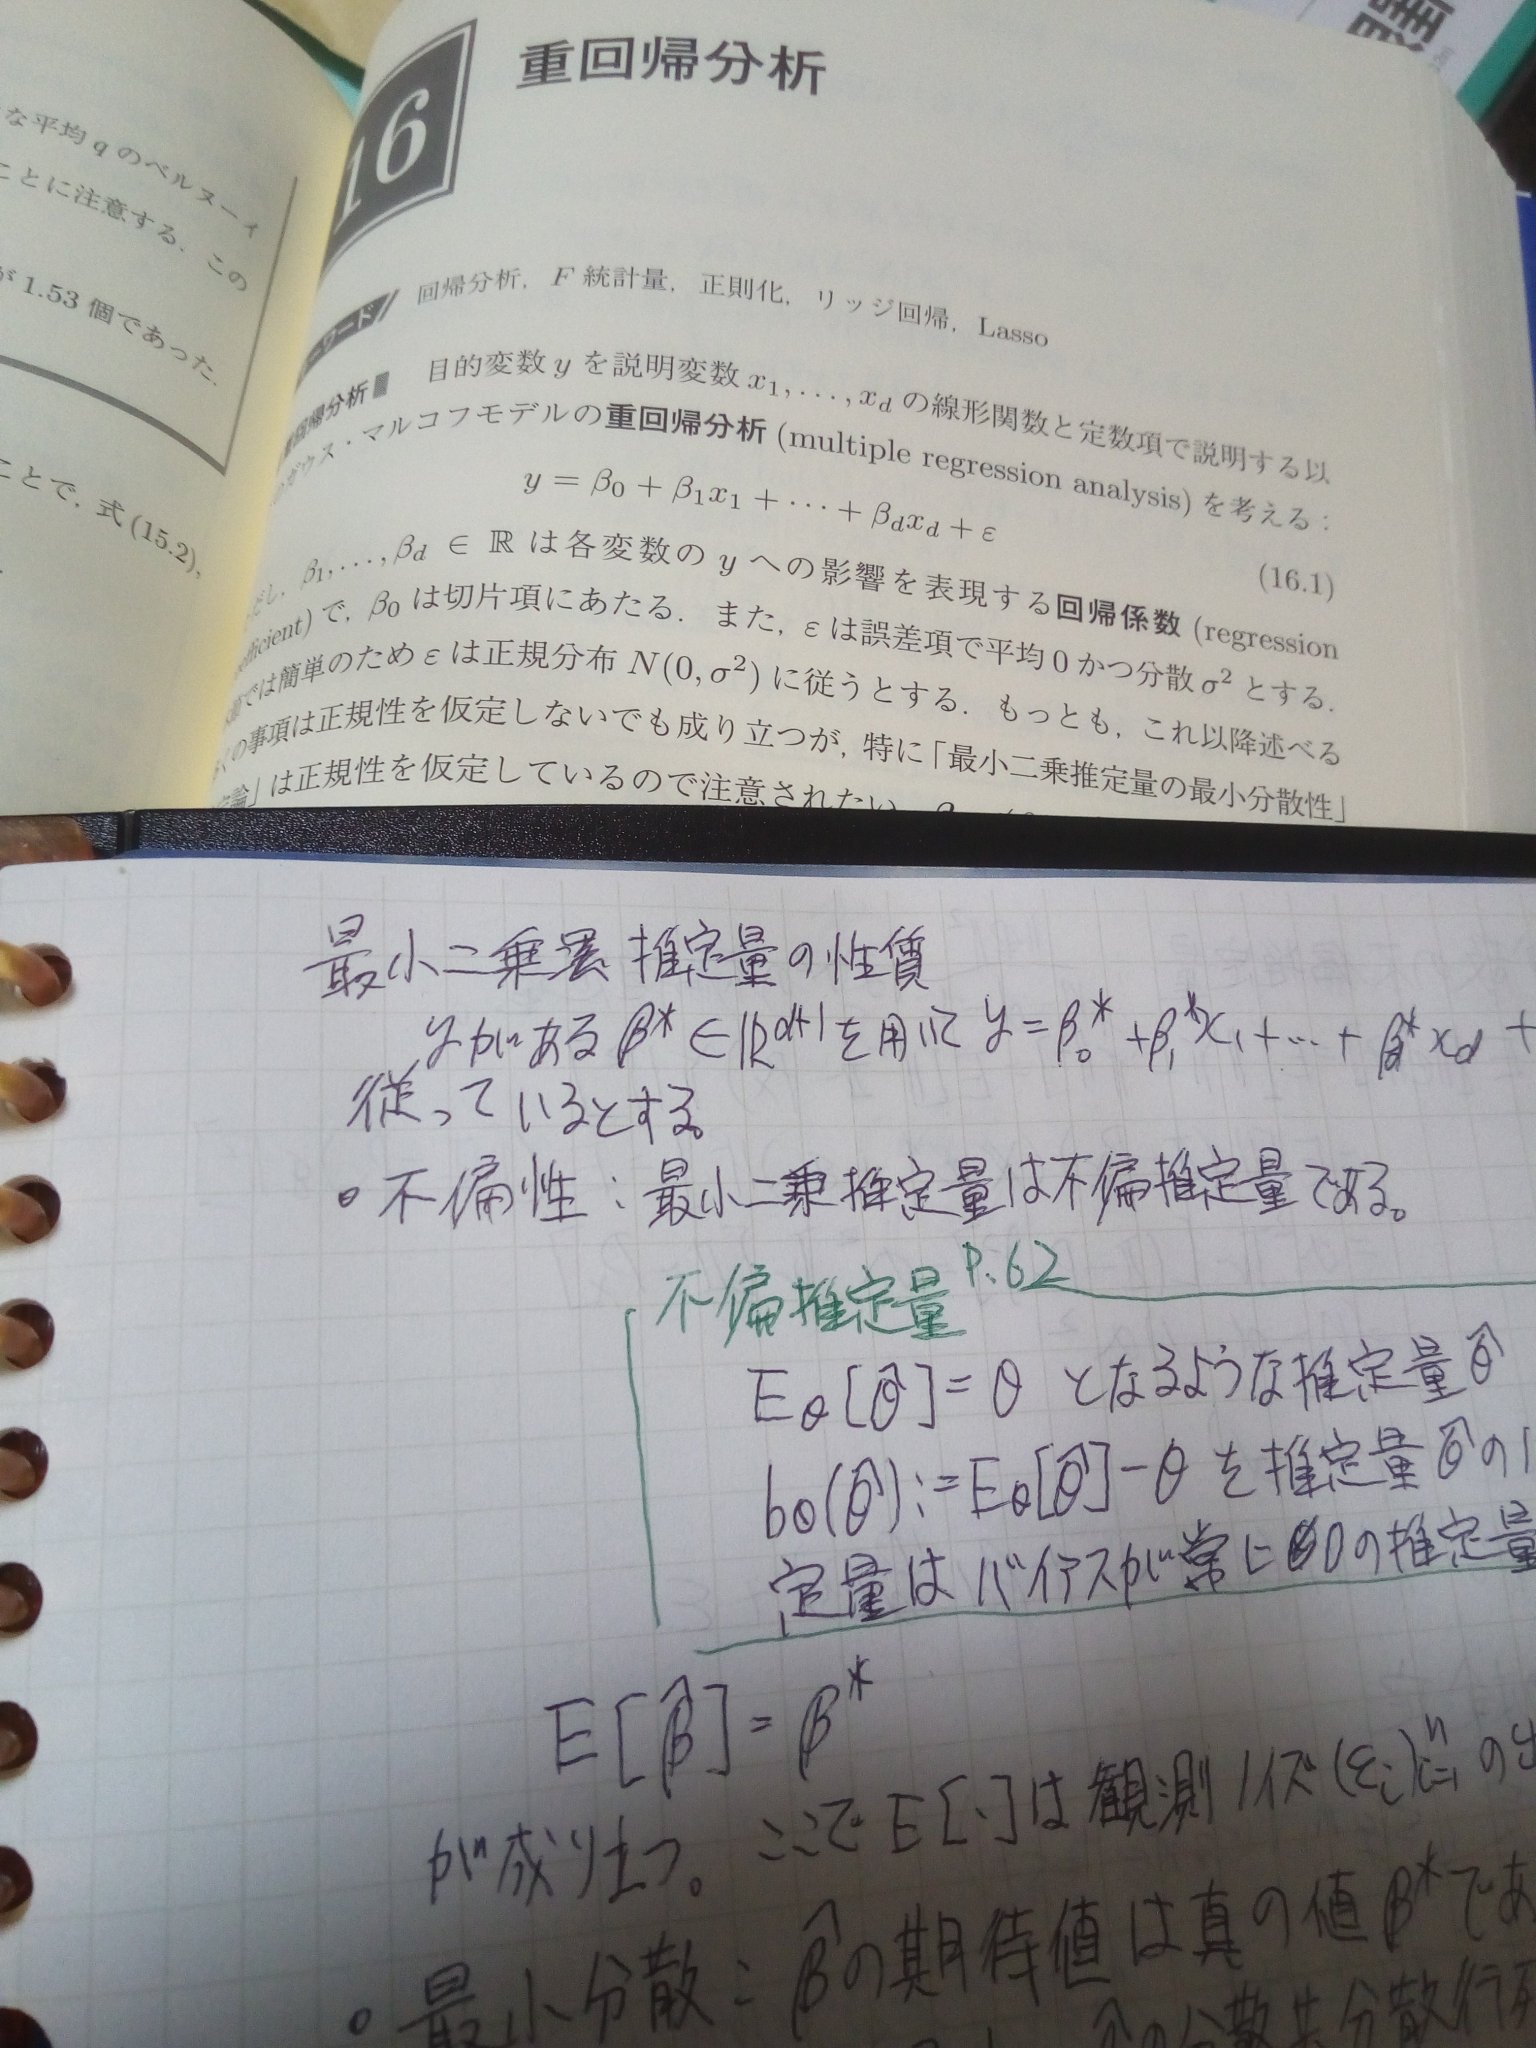 な平均 q のベルヌーイ
ことに注意する．この
が 1.53 個であった．
ことで，式 (15.2),
16
重回帰分析
ーワード
回帰分析，F 統計量，正則化，リッジ回帰，Lasso
重回帰分析 目的変数 y を説明変数 x₁, ..., x_d の線形関数と定数項で説明する以
ガウス・マルコフモデルの重回帰分析 (multiple regression analysis) を考える：
y = β₀ + β₁x₁ + ··· + β_d x_d + ε
(16.1)
だし，β₁, ..., β_d ∈ ℝ は各変数の y への影響を表現する回帰係数 (regression
efficient) で，β₀ は切片項にあたる．また，ε は誤差項で平均 0 かつ分散 σ² とする．
では簡単のため ε は正規分布 N(0, σ²) に従うとする．もっとも，これ以降述べる
の事項は正規性を仮定しないでも成り立つが，特に「最小二乗推定量の最小分散性」
論」は正規性を仮定しているので注意されたい．
最小二乗 推定量の性質
yがある β* ∈ ℝ^{d+1} を用いて y = β₀* + β₁*x₁ + ··· + β_d*x_d +
従っているとする。
• 不偏性：最小二乗推定量は不偏推定量である。
不偏推定量 P.62
E_θ[θ̂] = θ となるような推定量 θ̂
b_θ(θ̂) := E_θ[θ̂] − θ を推定量 θ̂ の
定量はバイアスが常に 0の推定量
E[β̂] = β*
が成り立つ。ここで E[·] は観測ノイズ (ε_i)ⁿ_{i=1} の
• 最小分散：β̂の期待値は真の値 β* であ
β̂の分散共分散行列